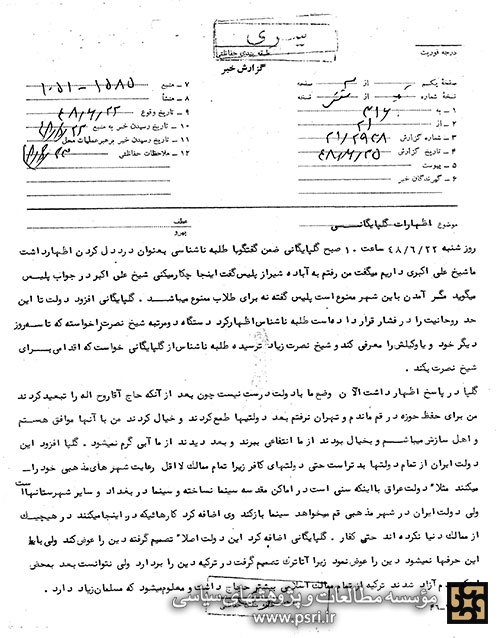 سری
طبقه بندی حفاظتی
گزارش خبر
درجه فوریت
صفحه یکم از ۳ صفحه
نسخه شماره از شش نسخه
۱ ـ به ۳۱۶
۲ ـ از ۲۱
۳ ـ شماره گزارش ۲۱/۲۹۲۸
۴ ـ تاریخ گزارش ۴۸/۶/۲۵
۵ ـ پیوست
۶ ـ گیرندگان خبر
۷ ـ منبع ۱۵۸۵ - ۱۰۵۱
۸ ـ منشأ
۹ ـ تاریخ وقوع ۴۸/۶/۲۲
۱۰ ـ تاریخ رسیدن خبر به منبع
۱۱ ـ تاریخ رسیدن خبر برهبر عملیات محل
۱۲ ـ ملاحظات حفاظتی
موضوع اظهارات گلپایگانی
عطف
پیرو
روز شنبه ۴۸/۶/۲۲ ساعت ۱۰ صبح گلپایگانی ضمن گفتگو با طلبه ناشناسی بعنوان درد دل کردن اظهار داشت
ما شیخ علی اکبری داریم میگفت من رفتم به آباده شیراز پلیس گفت اینجا چکار میکنی شیخ علی اکبر در جواب پلیس
میگوید مگر آمدن باین شهر ممنوع است پلیس گفته نه برای طلاب ممنوع میباشد . گلپایگانی افزود دولت تا این
حد روحانیت را در فشار قرار داده است طلبه ناشناس اظهار کرد دستگاه دو مرتبه شیخ نصرت را خواسته که تا سه روز
دیگر خود یا وکیلش را معرفی کند و شیخ نصرت زیاد ترسیده طلبه ناشناس از گلپایگانی خواست که اقدامی برای
شیخ نصرت بکند .
گلپا در پاسخ اظهار داشت الان وضع ما با دولت درست نیست چون بعد از آنکه حاج آقا روح اله را تبعید کردند
من برای حفظ حوزه در قم ماندم و تهران نرفتم بعد دولتیها طمع کردند و خیال کردند من با آنها موافق هستم
و اهل سازش میباشم و بخیال بودند از ما انتفاعی ببرند و بعد دیدند از ما آبی گرم نمیشود . گلپا افزود این
دولت ایران از تمام دولتها بدتر است حتی دولتهای کافر زیرا تمام ممالک لااقل رعایت شهر های مذهبی خود را
میکنند مثلا دولت عراق با اینکه سنی است در اماکن مقدسه سینما نساخته و سینما در بغداد و سایر شهرستانها است
ولی دولت ایران در شهر مذهبی قم میخواهد سینما باز کند وی اضافه کرد کارهائیکه در اینجا میکنند در هیچیک
از ممالک دنیا نکرده اند حتی کفار . گلپایگانی اضافه کرد این دولت اصلا تصمیم گرفته دین را عوض کند ولی باید
این حرفها نمیشود دین را عوض نمود زیرا آتاترک تصمیم گرفت در ترکیه دین را بردارد ولی نتوانست بعد بمحض
آزاد شدند ترکیه از تمام ممالک اسلامی بیشتر حجاج داشت و معلوم میشود که مسلمان زیاد دارد .
مؤسسه مطالعات و پژوهشهای سیاسی
www.psri.ir